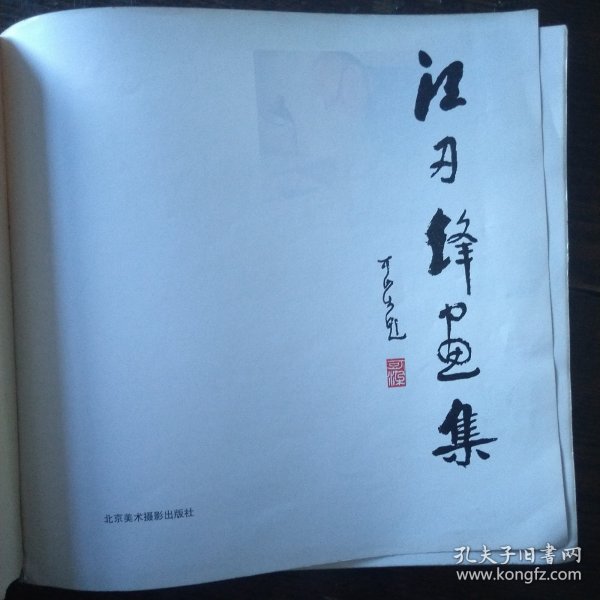 汪刃锋画集
可染题
北京美术摄影出版社
孔夫子旧書网
www.kongfz.com